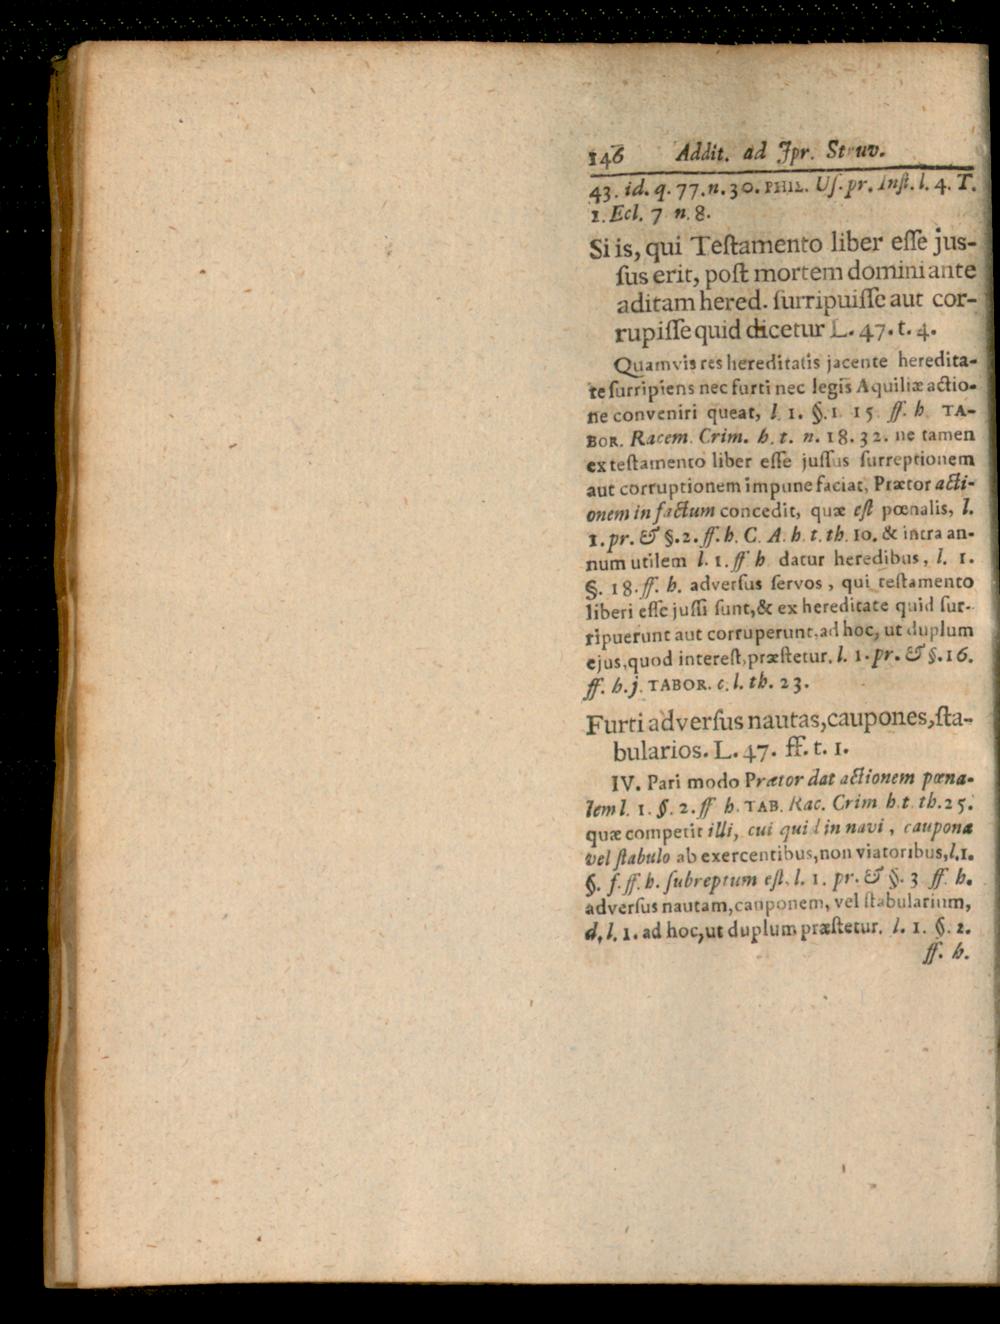 146 Addit. ad Jpr. Struv.
43. id. q. 77. n. 30. PHIL. Uſ. pr. Inſt. l. 4. T.
1. Ecl. 7 n. 8.
Si is, qui Teſtamento liber eſſe juſ-
ſus erit, poſt mortem domini ante
aditam hered. ſurripuiſſe aut cor-
rupiſſe quid dicetur L. 47. t. 4.
Quamvis res hereditatis jacente heredita-
te ſurripiens nec furti nec legis Aquiliæ actio-
ne conveniri queat, l. 1. §. 1 15 ff. h TA-
BOR. Racem. Crim. h. t. n. 18. 32. ne tamen
ex teſtamento liber eſſe juſſus ſurreptionem
aut corruptionem impune faciat, Prætor acti-
onem in factum concedit, quæ eſt pœnalis, l.
1. pr. & §. 2. ff. h. C. A. h. t. th. 10. & intra an-
num utilem l. 1. ff h datur heredibus, l. 1.
§. 18. ff. h. adverſus ſervos, qui teſtamento
liberi eſſe juſſi ſunt, & ex hereditate quid ſur-
ripuerunt aut corruperunt, ad hoc, ut duplum
ejus, quod intereſt, præſtetur. l. 1. pr. & §. 16.
ff. h. j. TABOR. c. l. th. 23.
Furti adverſus nautas, caupones, ſta-
bularios. L. 47. ff. t. 1.
IV. Pari modo Prætor dat actionem pœna-
lem l. 1. §. 2. ff h. TAB. Rac. Crim h. t. th. 25.
quæ competit illi, cui quid in navi, caupona
vel ſtabulo ab exercentibus, non viatoribus, l. 1.
§. f. ff. h. ſubreptum eſt, l. 1. pr. & §. 3 ff. h.
adverſus nautam, cauponem, vel ſtabularium,
d. l. 1. ad hoc, ut duplum præſtetur. l. 1. §. 2.
ff. h.